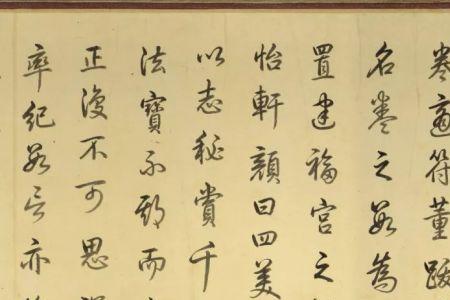 卷適符董跋
名卷之數為
置建福宮之
怡軒顏曰四美
以志秘賞千
法寶不期而
正復不可思
率紀數言亦